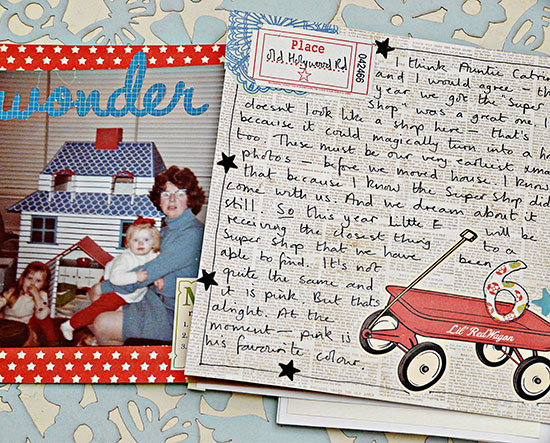 wonder
Place
Old Hollywood Rd
042468
I think Auntie Catri
and I would agree – th
year we got the Super
Shop was a great one. I
doesn't look like a shop here – that's
because it could magically turn into a ho
too. These must be our very earliest xmas
photos – before we moved house. I know
that because I know the Super Shop did
come with us. And we dream about it
still. So this year Little E will be
receiving the closest thing to a
Super Shop that we have been
able to find. It's not
quite the same and
it is pink. But thats
alright. At the
moment – pink is
his favourite colour.
6
Lil' Red Wagon